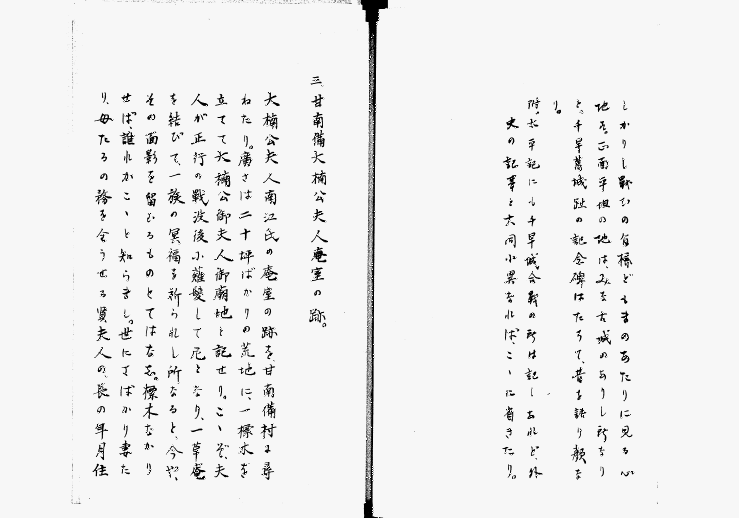 しかりし戰ひの有樣どもまのあたりに見る心
地す。正面平坦の地は、みな古城のありし所なり
と。千早葛城趾の記念碑はたちて、昔を語り顔な
り。
附。太平記にも千早城合戰の所は記しあれど、外
史の記事と大同小異なれば、こゝに省きたり。
三、甘南備大楠公夫人庵室の跡。
大楠公夫人南江氏の庵室の跡を、甘南備村に尋
ねたり。廣さは二十坪ばかりの荒地に、一標木を
立てて大楠公御夫人御廟地と記せり。こゝぞ、夫
人が正行の戰沒後小薙髮して尼となり、一草庵
を結びて、一族の冥福を祈られし所なると、今や、
その面影を留むるものとてはなし。標木なかり
せば、誰れかこゝと知らまし。世にさばかり妻た
り、母たるの務を全うせる賢夫人の、長の年月住